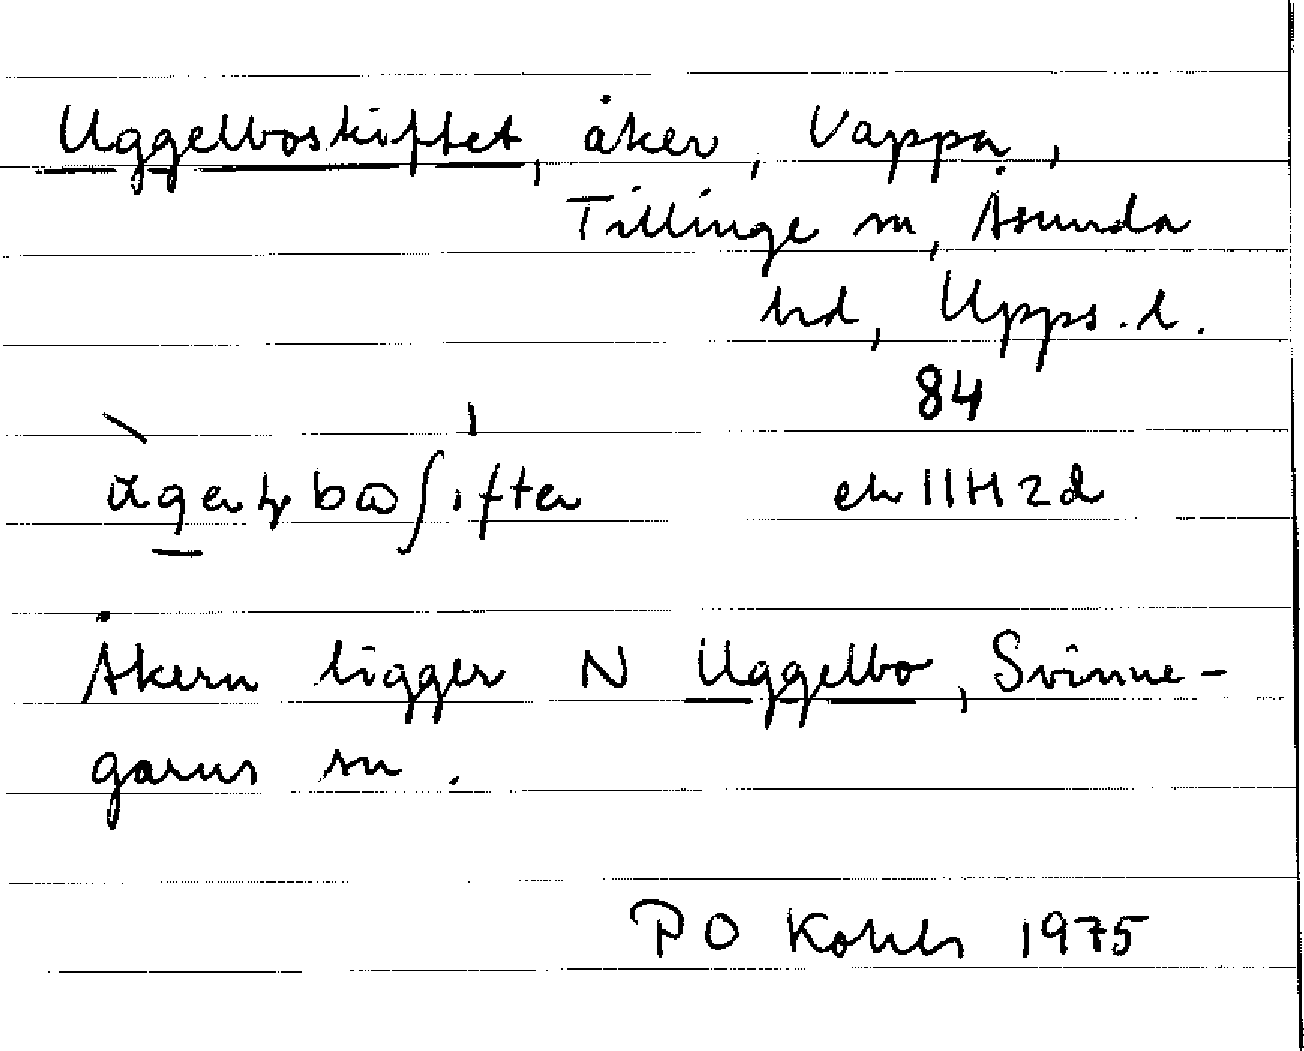 Uggelboskiftet, åker, Vappa,
Tillinge sn, Åsunda
hd, Upps. l.
84
ek 11H2d
Åkern ligger N Uggelbo, Svinne-
garns sn.
P O 1975